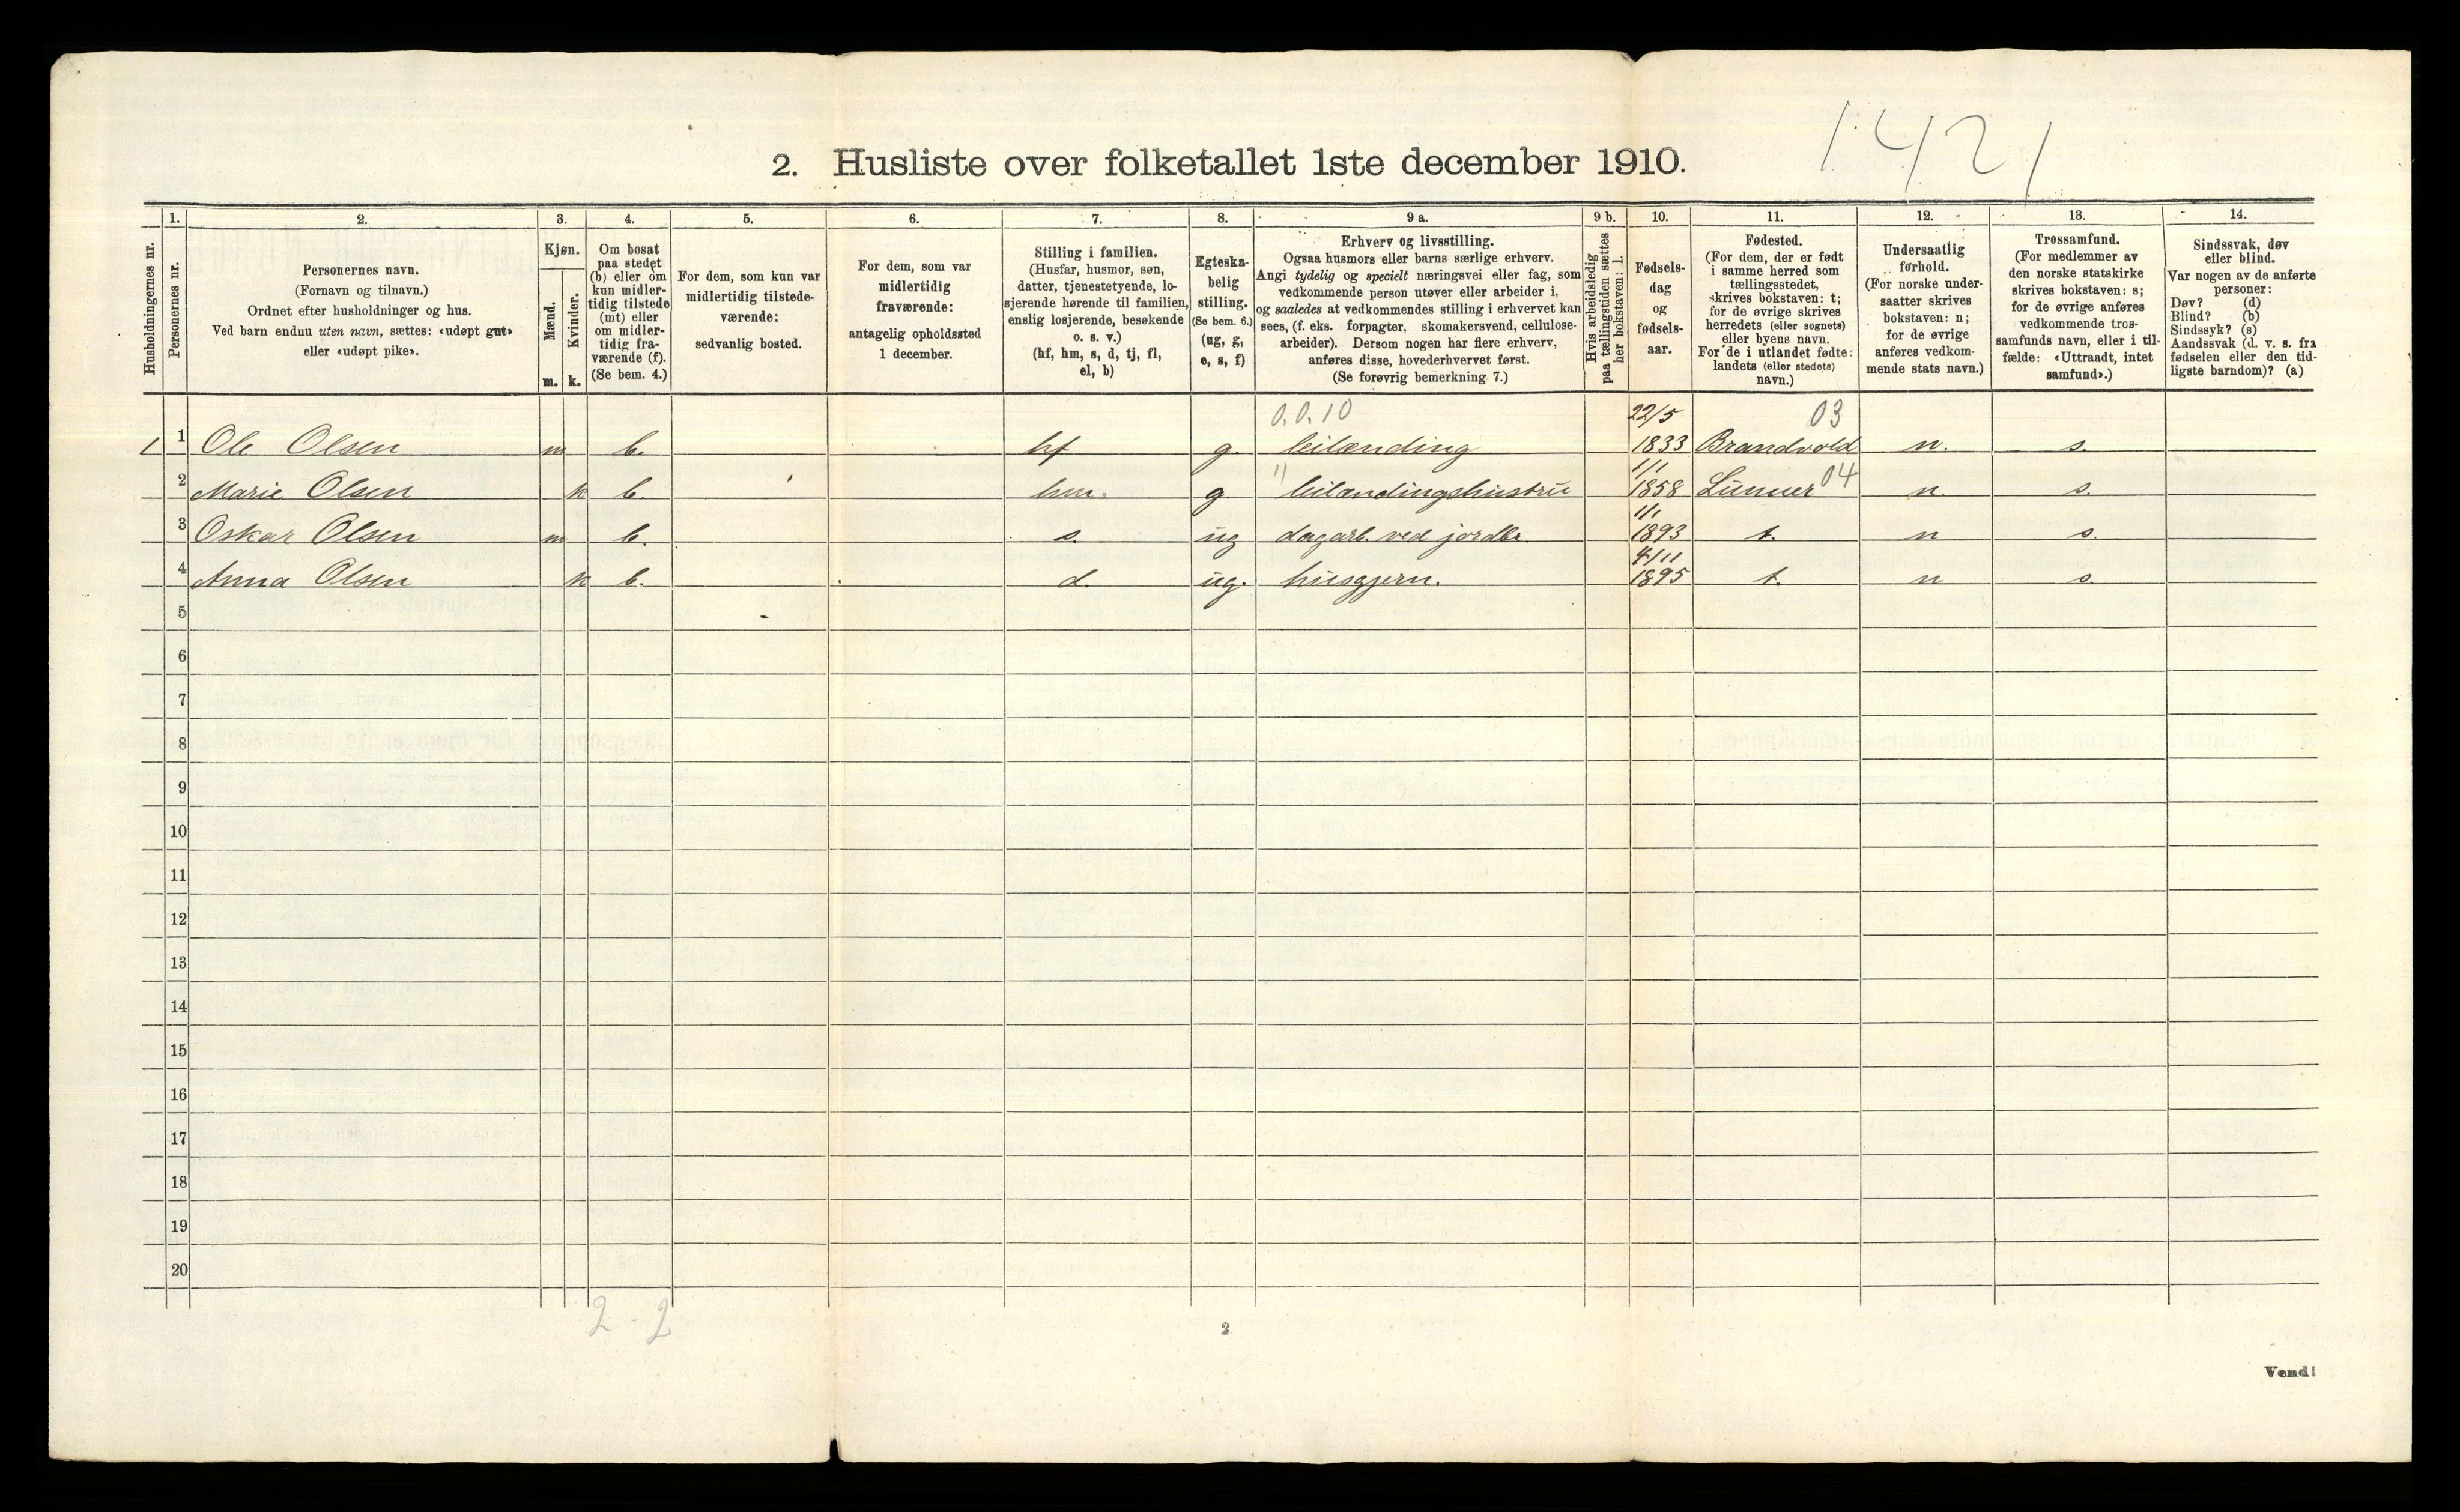 1421
2. Husliste over folketallet 1ste december 1910.
Husholdningernes nr.
1.
Personernes nr.
2.
Personernes navn.
(Fornavn og tilnavn.)
Ordnet efter husholdninger og hus.
Ved barn endnu uten navn, sættes: «udøpt gut»
eller «udøpt pike».
3.
Kjøn.
Mænd.
Kvinder.
m. k.
4.
Om bosat
paa stedet
(b) eller om
kun midler-
tidig tilstede
(mt) eller
om midler-
tidig fra-
værende (f).
(Se bem. 4.)
5.
For dem, som kun var
midlertidig tilstede-
værende:
sedvanlig bosted.
6.
For dem, som var
midlertidig
fraværende:
antagelig opholdssted
1 december.
7.
Stilling i familien.
(Husfar, husmor, søn,
datter, tjenestetyende, lo-
sjerende hørende til familien,
enslig losjerende, besøkende
o. s. v.)
(hf, hm, s, d, tj, fl,
el, b)
8.
Egteska-
belig
stilling.
(Se bem. 6.)
(ug, g,
e, s, f)
9 a.
Erhverv og livsstilling.
Ogsaa husmors eller barns særlige erhverv.
Angi tydelig og specielt næringsvei eller fag, som
vedkommende person utøver eller arbeider i,
og saaledes at vedkommendes stilling i erhvervet kan
sees, (f. eks. forpagter, skomakersvend, cellulose-
arbeider). Dersom nogen har flere erhverv,
anføres disse, hovederhvervet først.
(Se forøvrig bemerkning 7.)
9 b.
Hvis arbeidsledig
paa tællingstiden sættes
her bokstaven: l.
10.
Fødsels-
dag
og
fødsels-
aar.
11.
Fødested.
(For dem, der er født
i samme herred som
tællingsstedet,
skrives bokstaven: t;
for de øvrige skrives
herredets (eller sognets)
eller byens navn.
For de i utlandet fødte:
landets (eller stedets)
navn.)
12.
Undersaatlig
forhold.
(For norske under-
saatter skrives
bokstaven: n;
for de øvrige
anføres vedkom-
mende stats navn.)
13.
Trossamfund.
(For medlemmer av
den norske statskirke
skrives bokstaven: s;
for de øvrige anføres
vedkommende tros-
samfunds navn, eller i til-
fælde: «Uttraadt, intet
samfund».)
14.
Sindssvak, døv
eller blind.
Var nogen av de anførte
personer:
Døv? (d)
Blind? (b)
Sindssyk? (s)
Aandssvak (d. v. s. fra
fødselen eller den tid-
ligste barndom)? (a)
0.0.10 22/5 03
1 1 Ole Olsen m b. hf g. leilænding 1833 Brandvold n. s.
1/1 04
2 Marie Olsen k b. hm. g " leilændingshustru 1858 Lunner n. s.
1/1
3 Oskar Olsen m b. s. ug dagarb. ved jordbr. 1893 t. n s.
4/11
4 Anna Olsen k b. d. ug. husgjern. 1895 t. n s.
5
6
7
8
9
10
11
12
13
14
15
16
17
18
19
20
2 - 2
2
Vend!